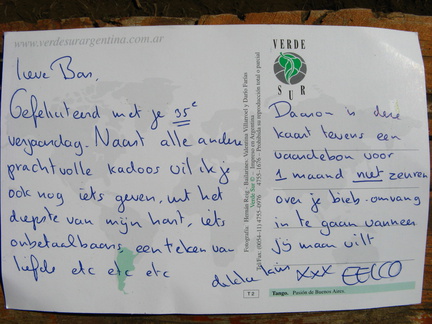 www.verdesurargentina.com.ar
lieve Bas,
Gefeliciteerd met je 35e
verjaardag. Naast alle andere
prachtvolle kadoos wil ik je
ook nog iets geven, uit het
diepste van mijn hart, iets
onbetaalbaars, een teken van
liefde etc etc etc
VERDE
SUR
Daarom is deze
kaart tevens een
waardebon voor
1 maand niet zeuren
over je bieb-omvang
in te gaan wanneer
jij maar wilt
dikke kus xxx EELCO
Fotografía: Hernán Reig - Bailarines: Valentina Villarroel y Darío Farías
Verde Sur © - Impreso en Argentina
4755-1676 - Prohibida su reproducción total o parcial
T 2
Tango. Pasión de Buenos Aires.